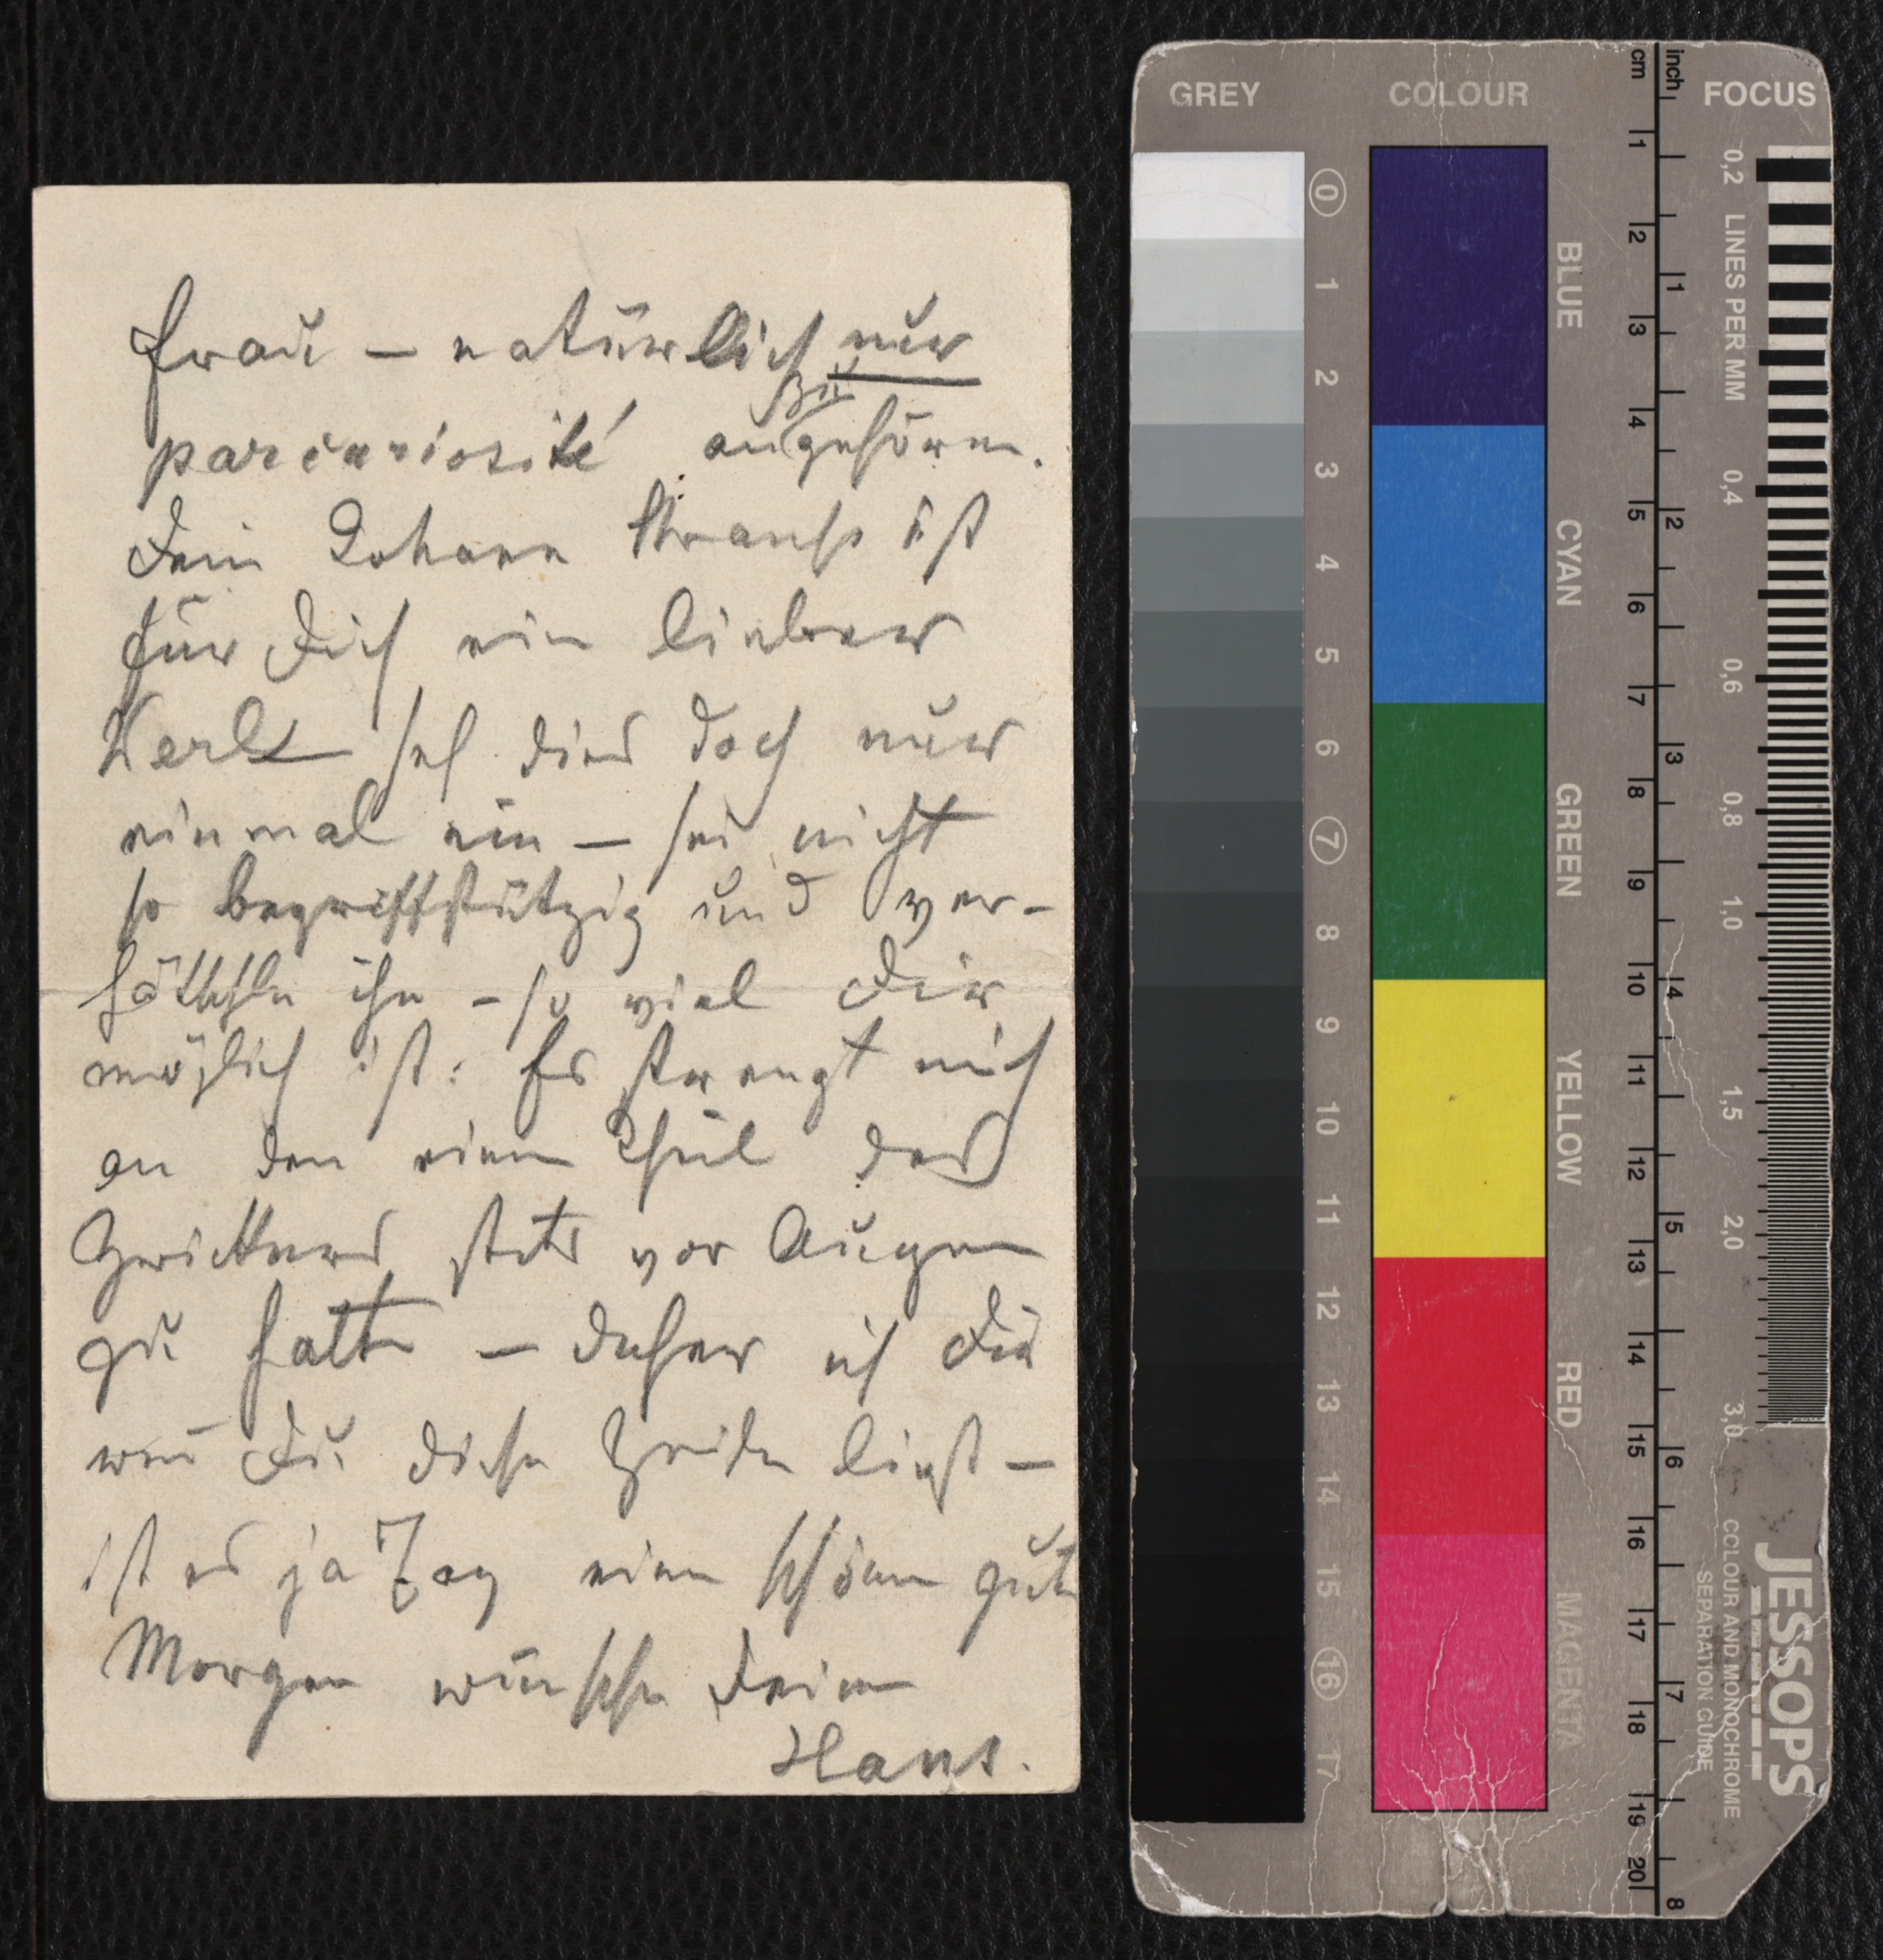 Frau – natürlich nur
par curiosité anzugehören.
Dein Johann Strauss ist
für Dich ein lieber
Kerl seh dies doch nur
einmal ein – sei nicht
so begriffstützig und ver-
hätschle ihn – so viel Dir
möglich ist: Es strengt mich
an den einen Theil des
Zwickers stets vor Augen
zu halten – daher ich Dir
wenn Du diese Zeilen liest –
ist es ja Tag einen schönen guten
Morgen wünsche Deinen
Hans.
GREY
COLOUR
cm
inch
FOCUS
0 1 2 3 4 5 6 7 8 9 10 11 12 13 14 15 16 17
BLUE
CYAN
GREEN
YELLOW
RED
MAGENTA
1 2 3 4 5 6 7 8 9 10 11 12 13 14 15 16 17 18 19 20
1 2 3 4 5 6 7 8
0,2 LINES PER MM 0,4 0,6 0,8 1,0 1,5 2,0 3,0
JESSOPS
COLOUR AND MONOCHROME
SEPARATION GUIDE